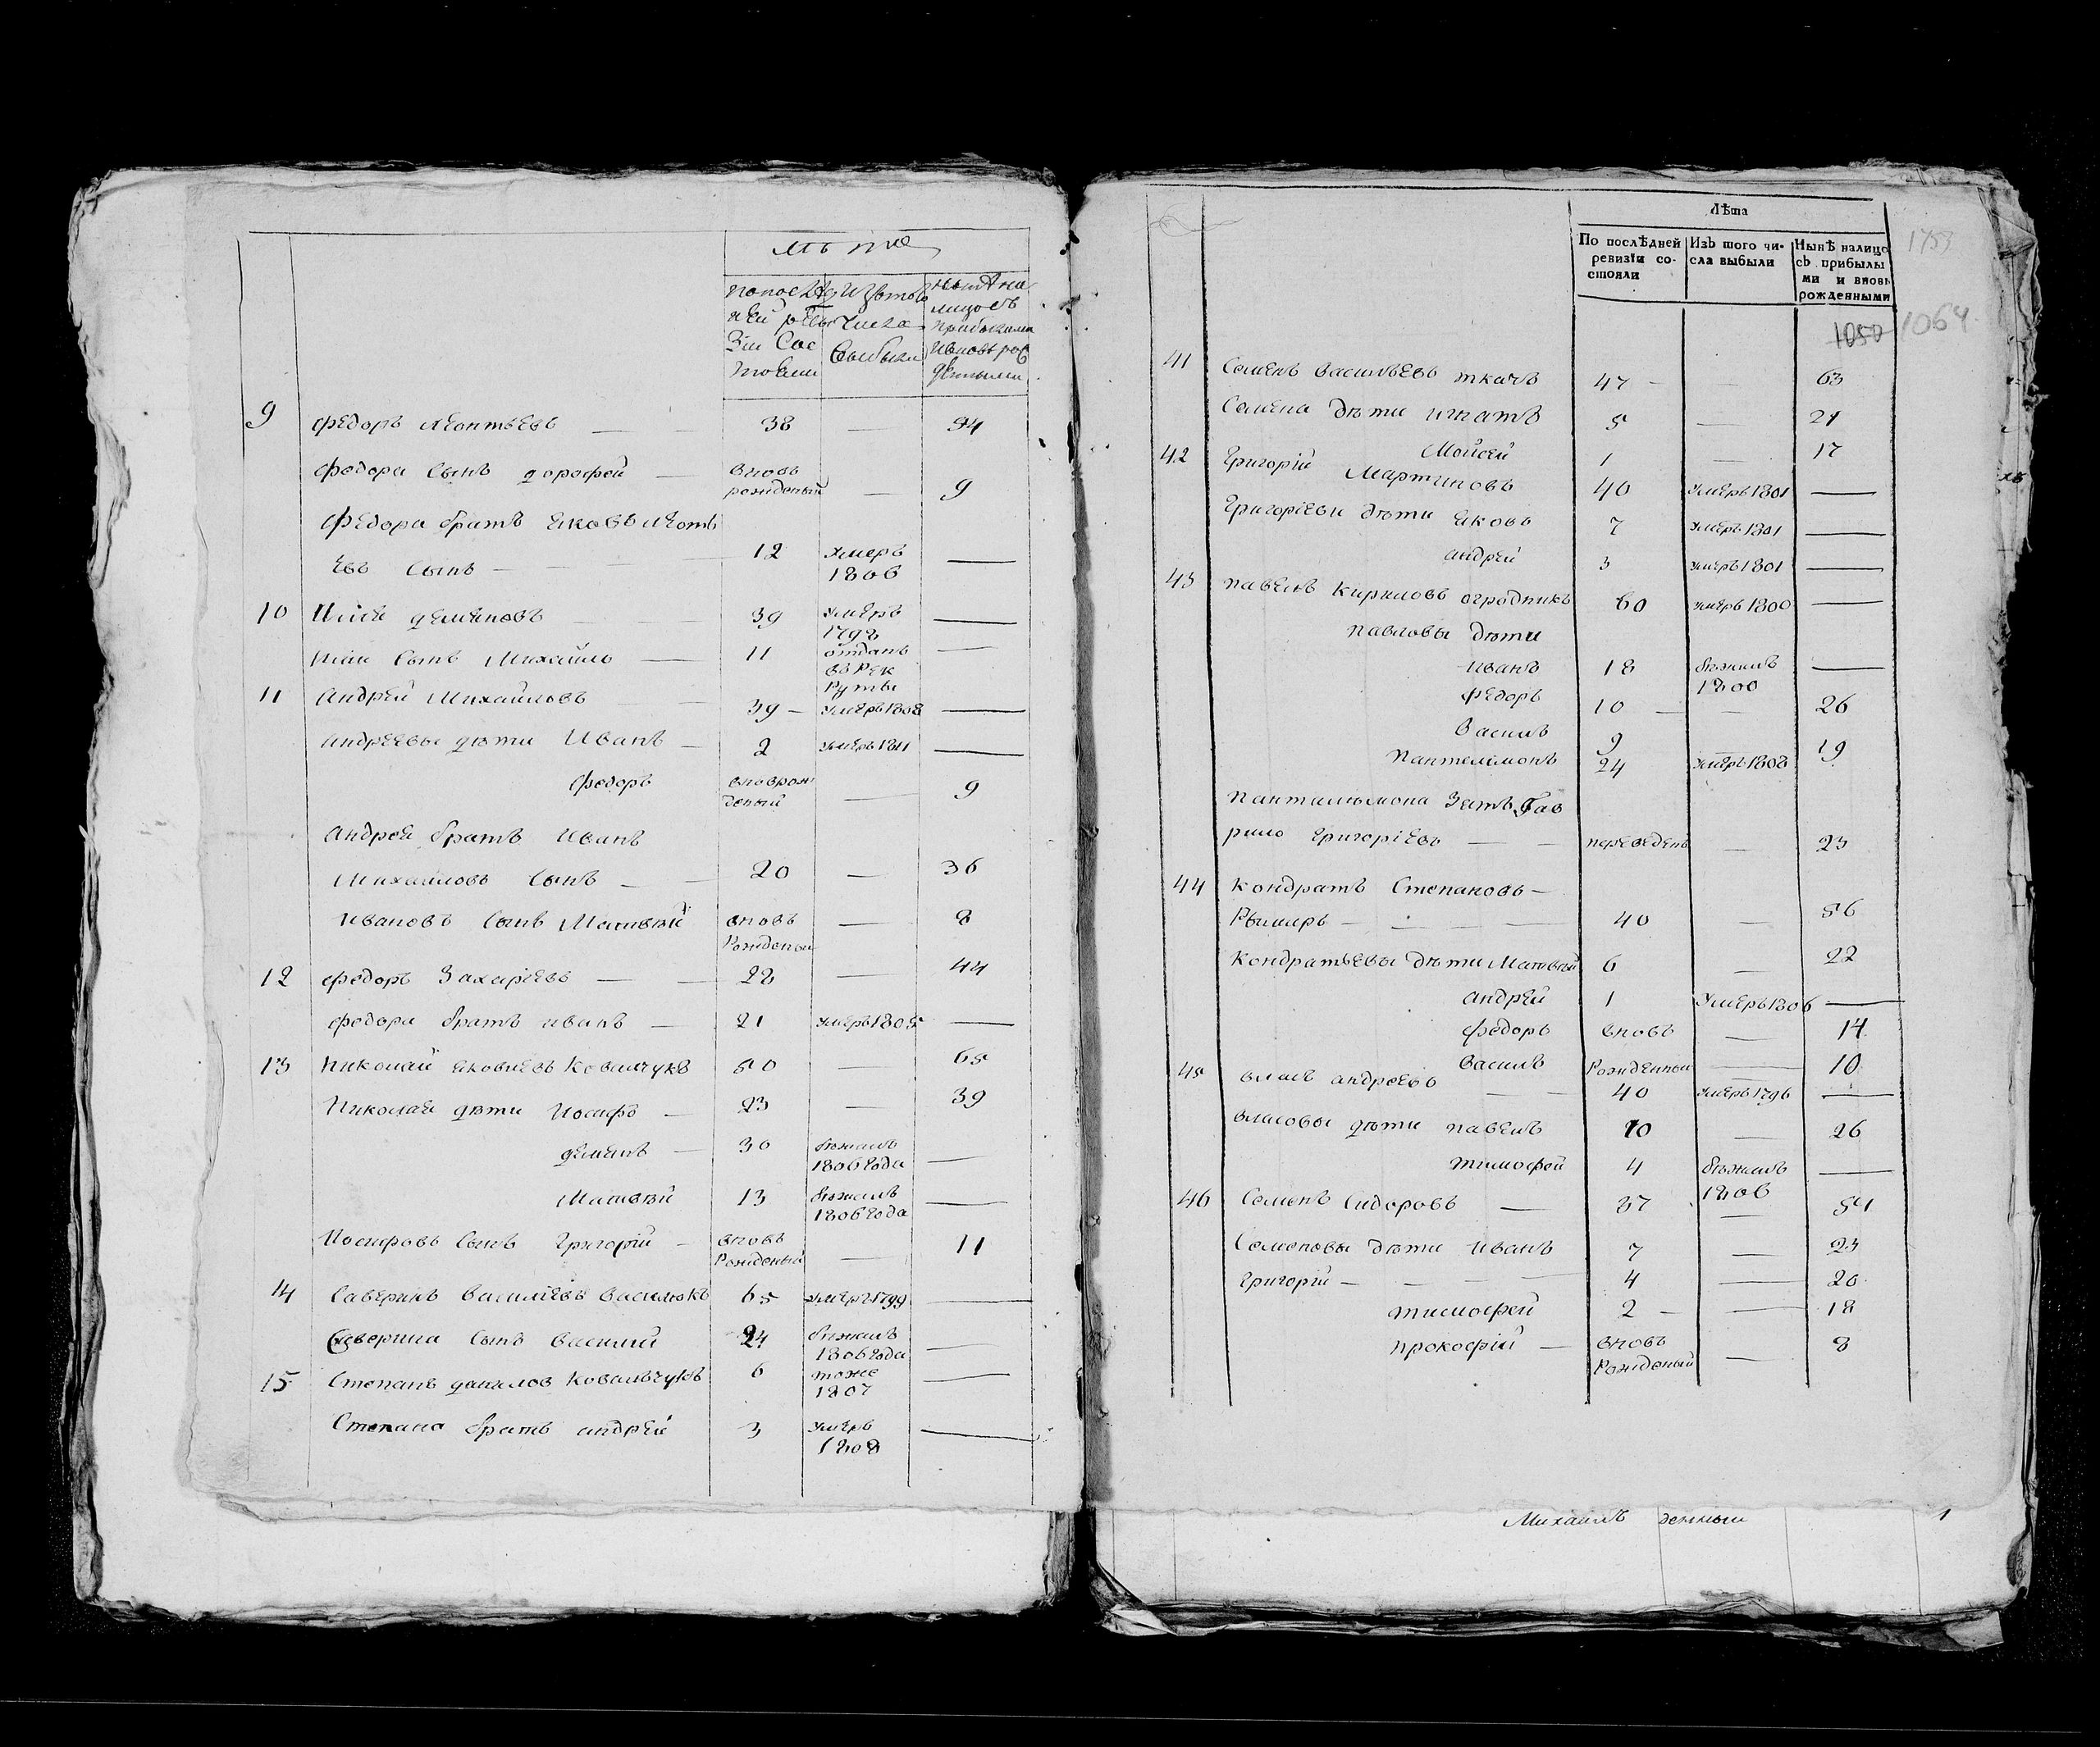 лѣта
По послѣд Изъ того Нынѣ на
ней реви числа лицо съ
зіи Сос выбыли прибылыми
тояли ивновь рож
денными
9 Федоръ Леонтьевъ — 38 — 54
Федора Сынъ дорофей — вновь рожденый — 9
Федора братъ Яковъ Леонть
евъ Сынъ — 12 умеръ 1806 —
10 Илія демяновъ — 39 умеръ 1798 —
Иліи Сынъ Михайло — 11 отданъ въ Рек Руты —
11 Андрей Михайловъ 39 — умеръ 1808 —
андреевы дѣти Иванъ — 2 умеръ 1811 —
федоръ вноврож деный — 9
Андрея братъ Иванъ
Михайловъ Сынъ — 20 — 36
Ивановъ Сынъ Матвѣй вновь Рожденый — 8
12 федоръ Захаріевъ — 28 — 44
федора братъ иванъ — 21 умеръ 1805 —
13 Николай Яковлевъ Ковалчукъ 50 — 65
Николая дѣти Иосифъ — 23 — 39
демянъ — 30 бѣжалъ 1806 года —
Матвѣй 13 бѣжалъ 1806 года —
Иосифовъ Сынъ Григорій — вновь Рожденый — 11
14 Саверинъ Василіевъ Василюкъ 65 умеръ 1799 —
Саверина Сынъ Василий 24 бѣжалъ 1806 года —
15 Степанъ данилов Ковальчукъ 6 тоже 1807 —
Степана братъ андрей 3 умеръ 1808 —
Лѣта
По послѣдней Изъ того чи- Нынѣ налицо
ревизіи со- сла выбыли съ прибылы
стояли ми и вновь
рожденными
1753
1050 1064
41 Семенъ васильевъ ткачъ 47 — — 63
Семена дѣти игнатъ 5 — 21
Мойсей 1 — 17
42 Григорій Мартиновъ 40 умеръ 1801 —
Григоріевы дѣти яковъ 7 умеръ 1801 —
андрей 3 умеръ 1801 —
43 павелъ кириловъ огродникъ 60 умеръ 1800 —
павловы дѣти
иванъ 18 бѣжалъ 1800 —
федоръ 10 — — 26
Василь 9 — 19
пантелимонъ 24 умеръ 1808
панталимона Зять Гав
рило Григоріевъ — — переведенъ — 23
44 кондратъ Степановъ —
Рымаръ — 40 — 56
кондратьевы дѣти Матвѣй 6 — 22
андрей 1 умеръ 1806 —
федоръ вновь — 14
Василь Рожденный — 10
45 власъ андреевъ — — 40 умеръ 1796 —
власовы дѣти павелъ 10 — 26
тимофей 4 бѣжалъ 1806 —
46 Семенъ Сидоровъ — 37 — 54
Семеновы дѣти иванъ 7 — 23
григорій — — — — 4 — 20
тимофей 2 — — 18
прокофій — вновь Рожденый — 8
Михаилъ денныи 1